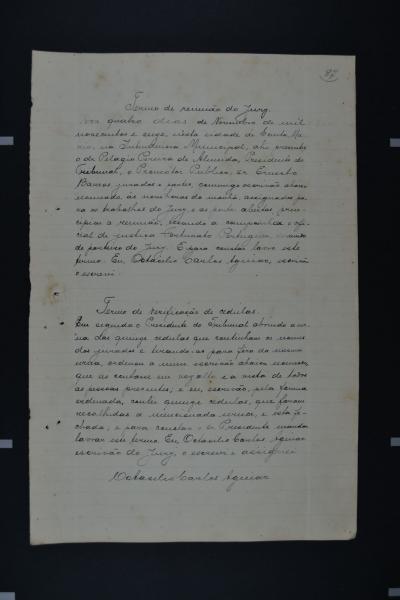 Termo de reunião do Jury.
Aos quatro dias de Novembro de mil
novecentos e onze, nesta cidade de Santa Ma
ria, na Intendencia Municipal, ahi presente
o dr Pelagio Pereira de Almeida, Presidente do
Tribunal, o Promotor Publico, dr Ernesto
Barros jurados e partes, commigo escrivão abaixo
nomeado, as nove horas da manhã, designadas pa
ra os trabalhos do Jury e as portas abertas, prin
cipiou a reunião, estando a campainha o offi
cial de justiça Fortunato
de porteiro do Jury. E para constar lavro este
termo. Eu, Octasilio Carlos Aguiar, escrivão
o escrevi.
Termo de verificação de cedulas.
Em seguida o Presidente do Tribunal abrindo a ur
na das quinze cedulas que continham os nomes
dos jurados e tirando-as para fora da mesma
urna, ordenou a mim escrivão abaixo nomeado,
que as contasse em voz alta e a vista de todas
as pessoas presentes; e eu, escrivão, pela forma
ordenada, contei quinze cedulas, que foram
recolhidas a mencionada urna, e esta fe
chada; e para constar o Presidente mandou
lavrar este termo. Eu Octasilio Carlos Aguiar
escrivão do Jury, o escrevi e assignei
Octasilio Carlos Aguiar